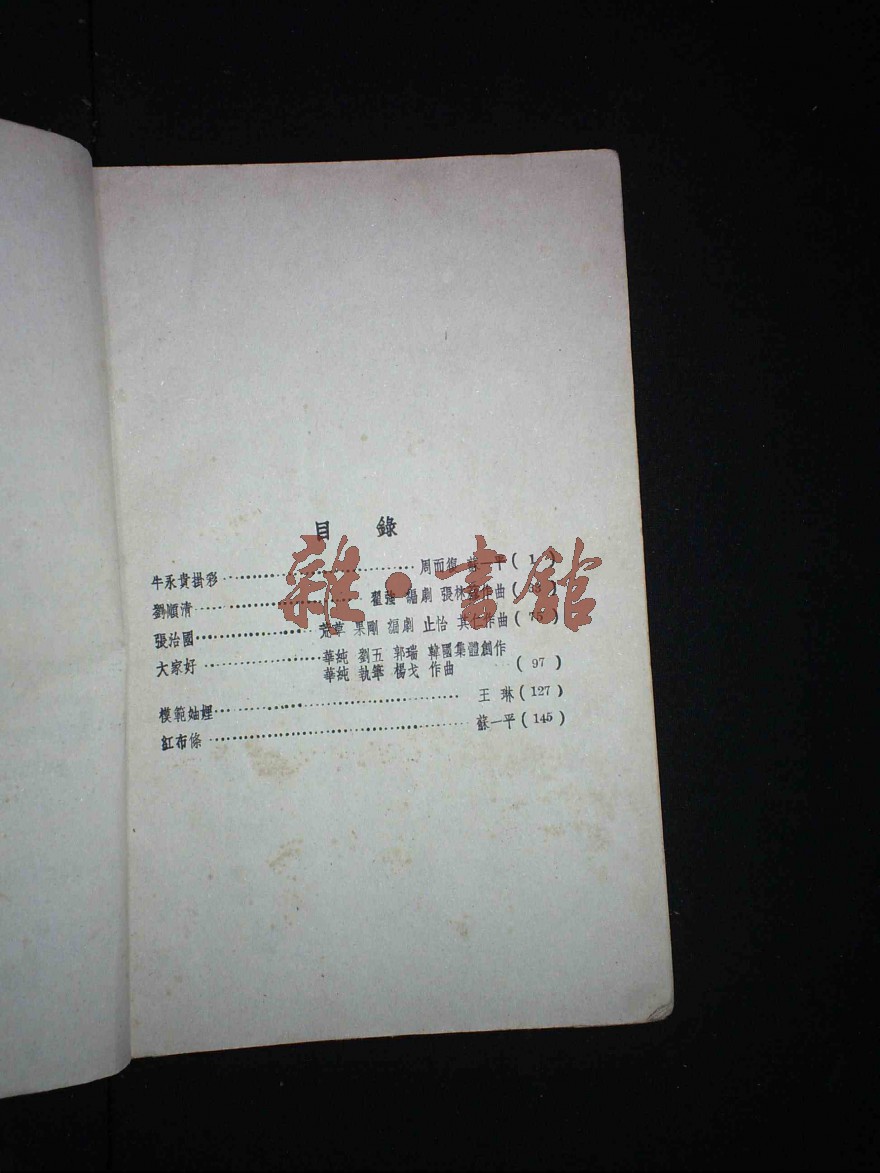 目 錄
牛永貴掛彩 周而復 蘇一平 ( 1 )
劉順清 翟強 編劇 張林 作曲
張治國 荒草 果剛 編劇 止怡 其仁作曲
大家好 華純 劉五 郭瑞 韓國集體創作
華純 執筆 楊戈 作曲 ( 97 )
模範妯娌 王 琳 ( 127 )
紅布條 蘇一平 ( 145 )
雜·書館